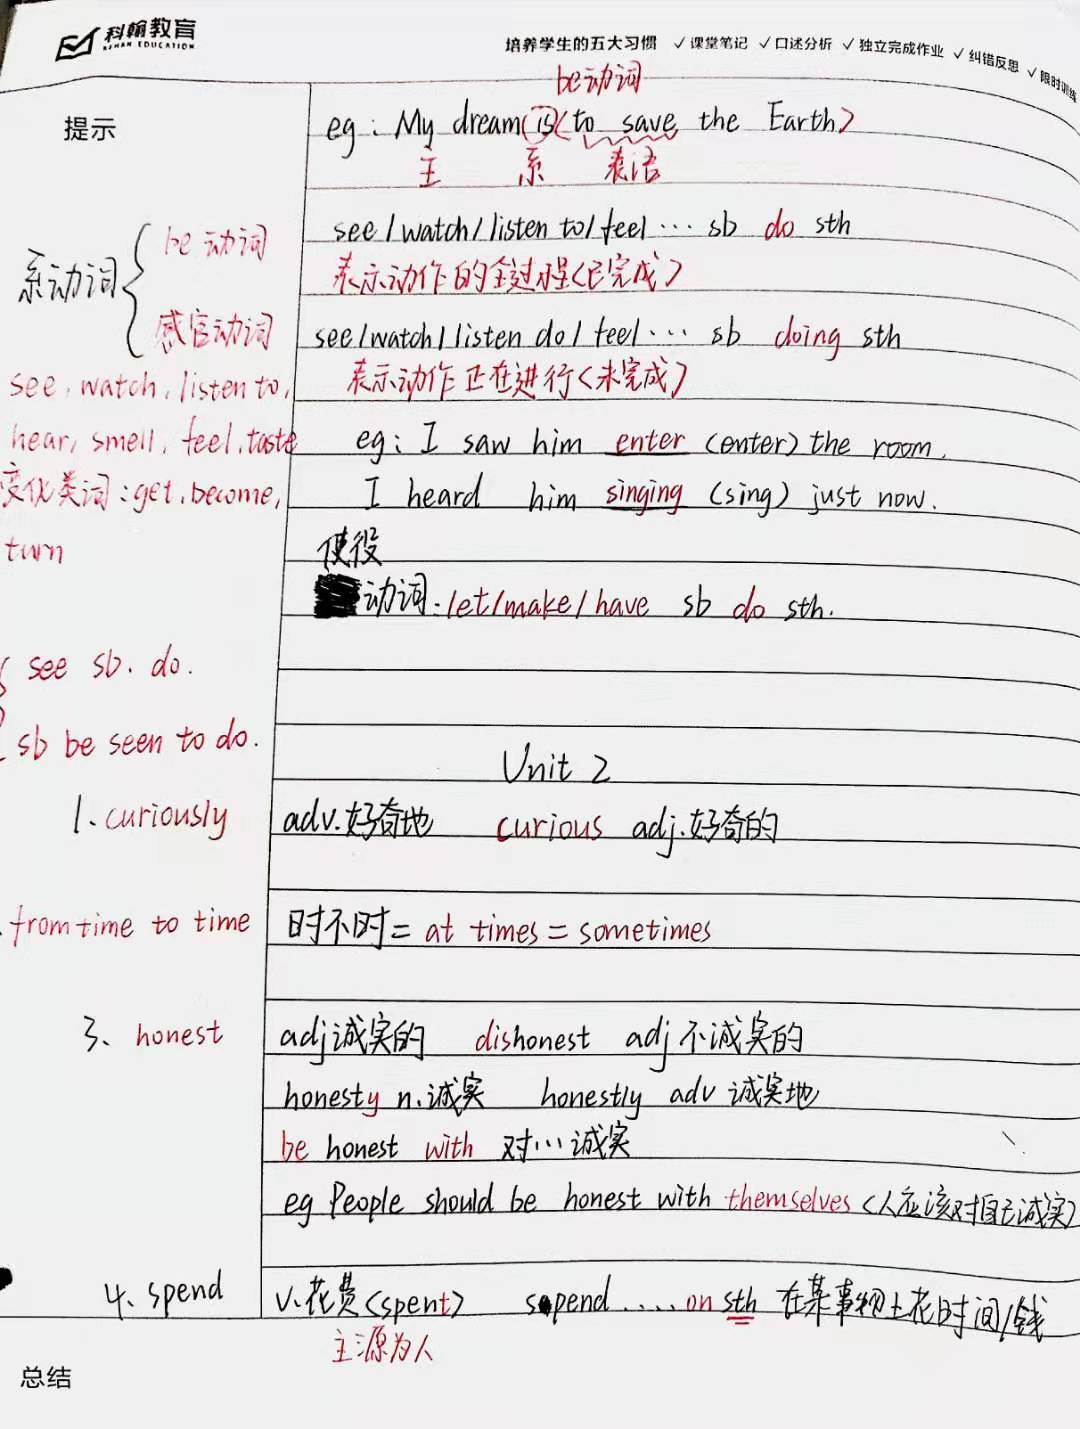 科翰教育
KEHAN EDUCATION
培养学生的五大习惯 ✓课堂笔记 ✓口述分析 ✓独立完成作业 ✓纠错反思 ✓限时训练
提示
be动词
eg: My dream(is)(to save the Earth)
主 系 表语
系动词 { be 动词
感官动词
see, watch, listen to,
hear, smell, feel, taste
变化类词: get, become,
turn
see / watch / listen to / feel … sb do sth
表示动作的全过程(已完成)
see / watch / listen do / feel … sb doing sth
表示动作正在进行(未完成)
eg: I saw him enter (enter) the room.
I heard him singing (sing) just now.
使役
动词: let / make / have sb do sth.
see sb. do.
sb be seen to do.
Unit 2
1. curiously adv. 好奇地 curious adj. 好奇的
from time to time 时不时 = at times = sometimes
3、honest adj 诚实的 dishonest adj 不诚实的
honesty n. 诚实 honestly adv 诚实地
be honest with 对… 诚实
eg People should be honest with themselves (人应该对自己诚实)
4. spend v. 花费 (spent) spend .... on sth 在某事物上花时间/钱
主源为人
总结